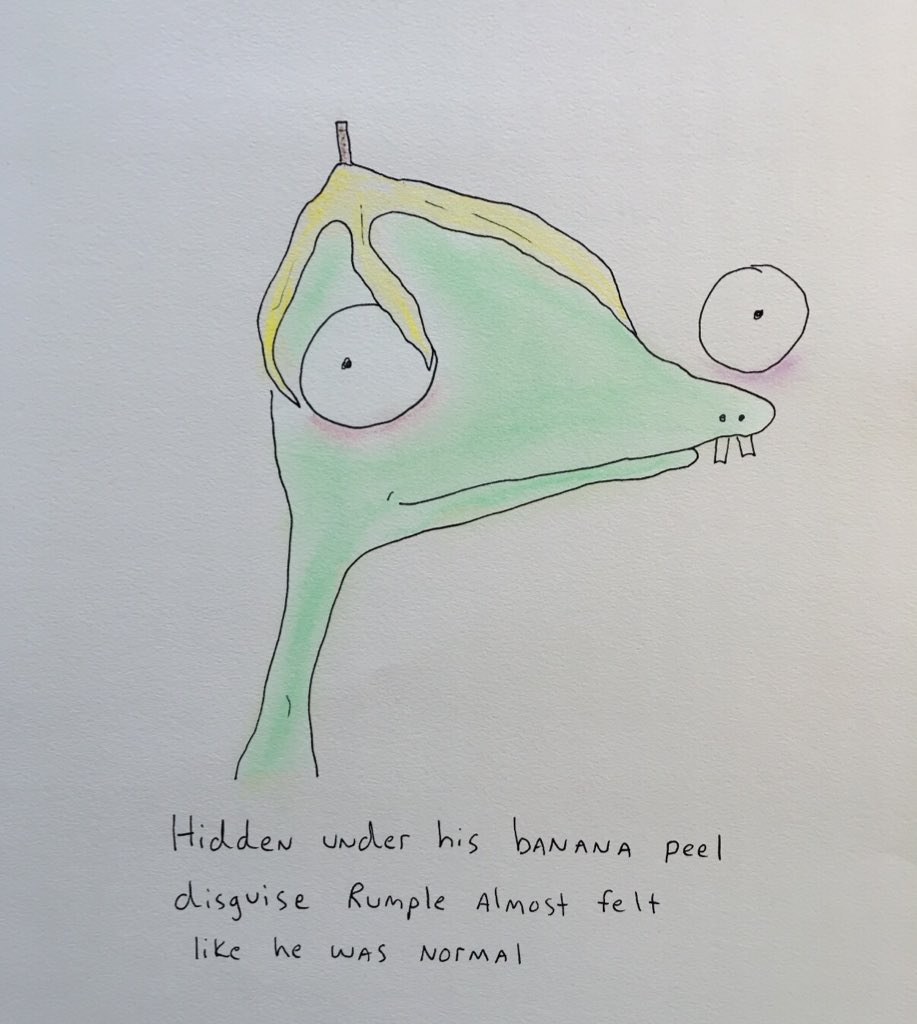 Hidden under his banana peel
disguise Rumple Almost felt
like he was normal